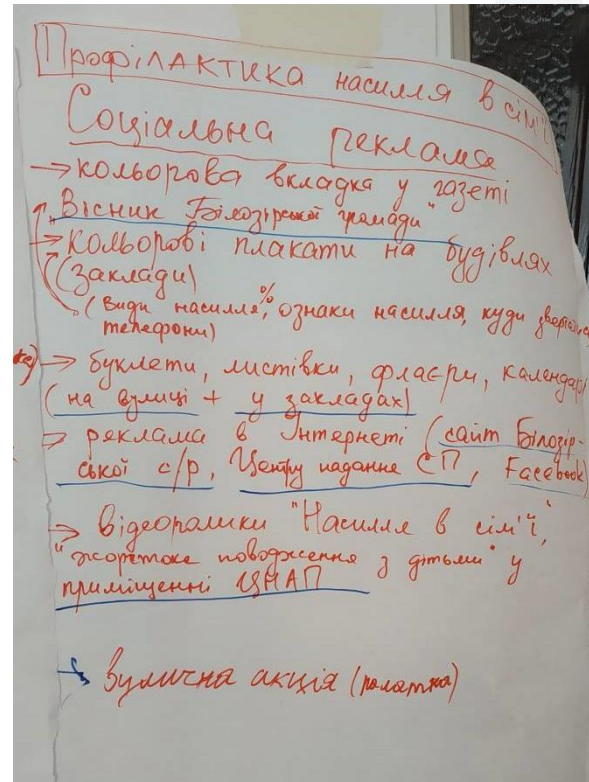 Профілактика насилля в сім'ї
Соціальна реклама
→ кольорова вкладка у газеті
"Вісник Білозірської громади"
→ Кольорові плакати на будівлях
(заклади)
(види насилля, %, ознаки насилля, куди
телефони)
→ буклети, листівки, флаєри, календарі
(на вулиці + у закладах)
→ реклама в Інтернеті (сайт Білозір-
ської с/р, Центру надання СП, Facebook)
→ Відеоролики "Насилля в сім'ї",
"жорстоке поводження з дітьми" у
приміщенні ЦНАП
→ вулична акція (палатка)